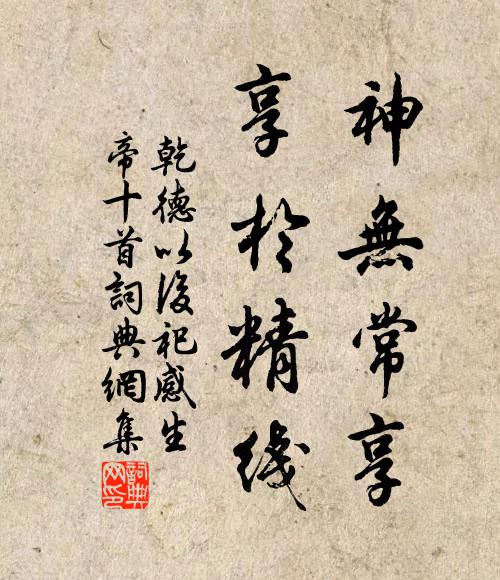 神無常享
享於精綫
乾德以後祀感生
帝十首詞典網集
詞典網印